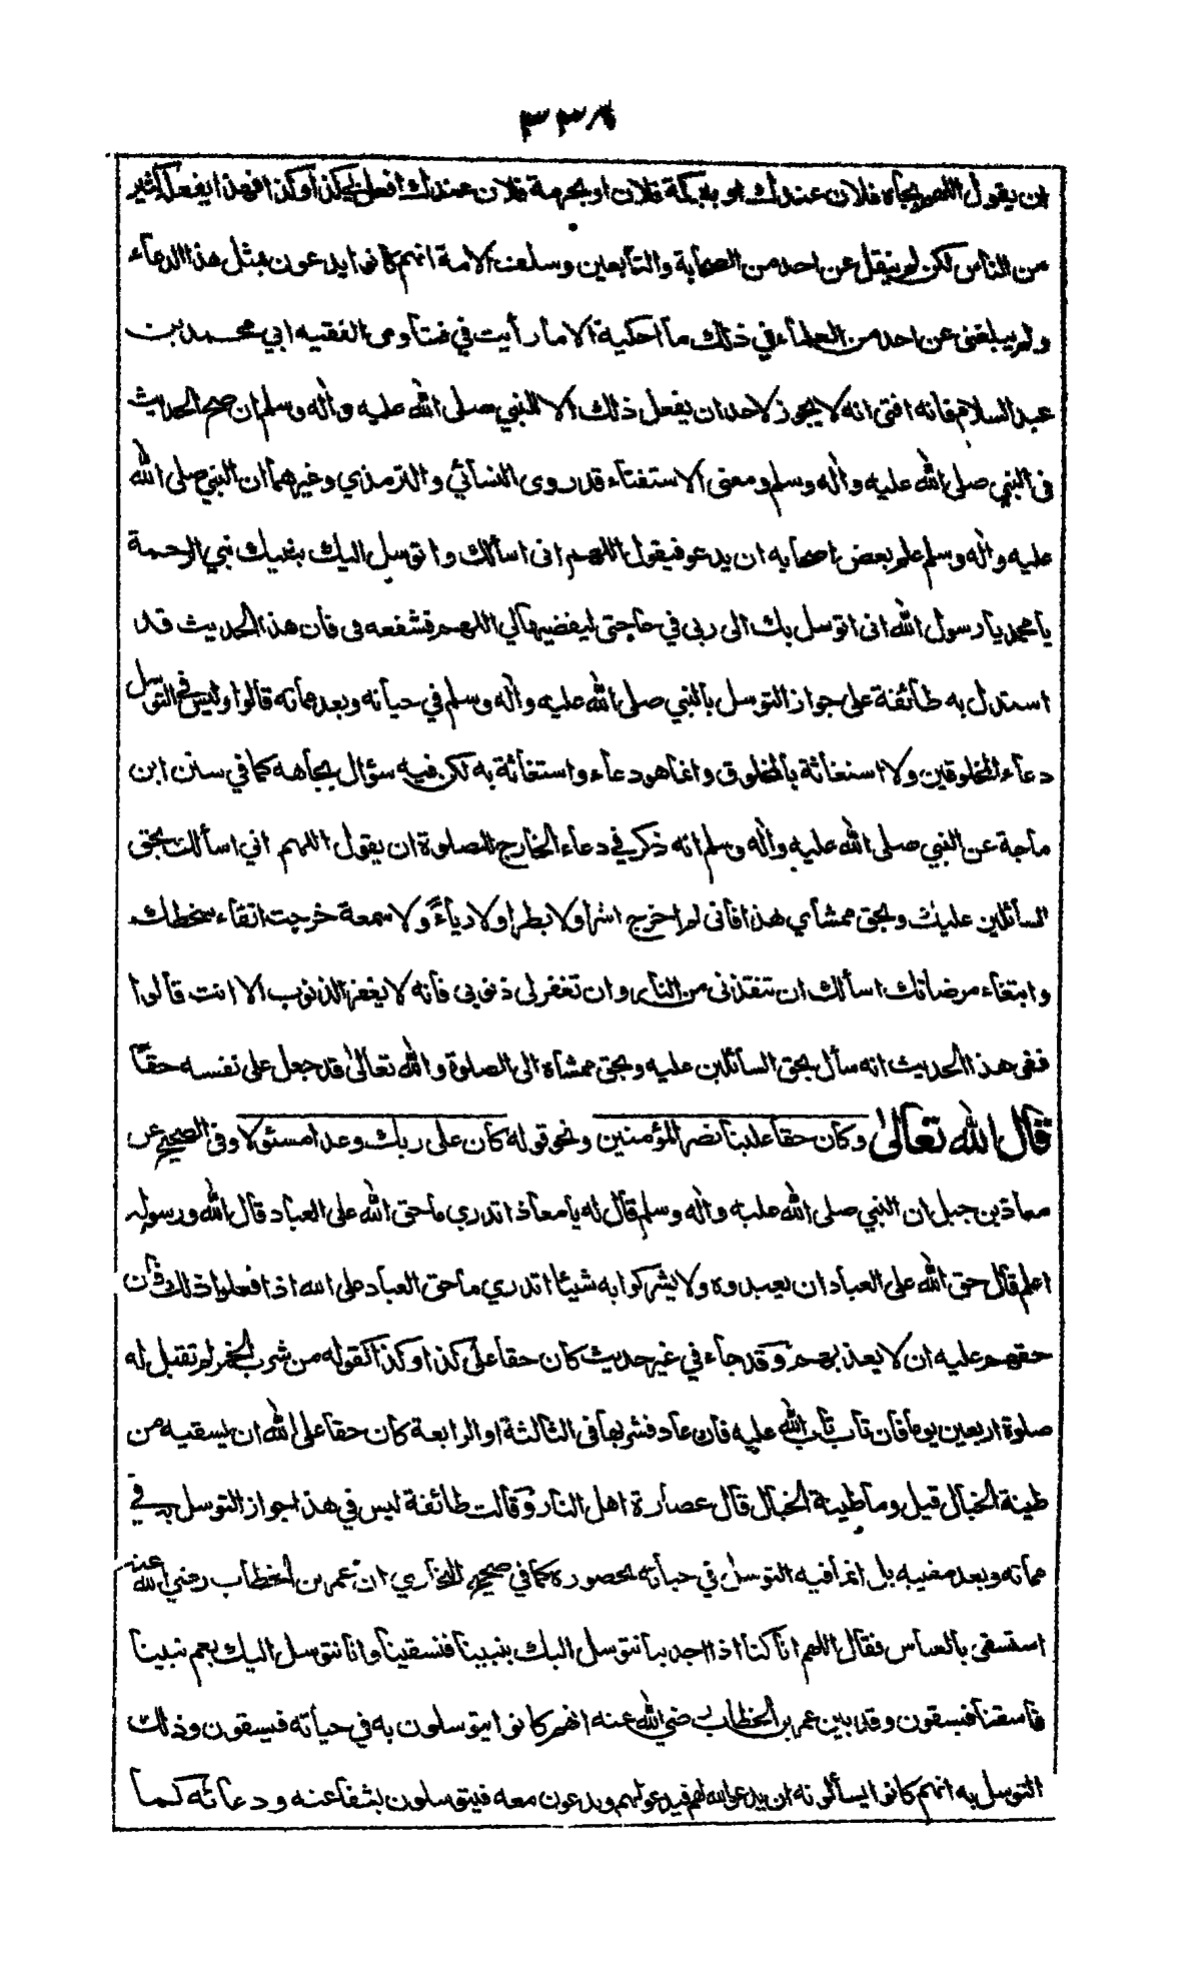 ٣٣٨
ان يقول اللهم بجاه فلان عندك او ببركة فلان او بحرمة فلان عندك افعل بي كذا وكذا فهذا يفعله كثير
من الناس لكن لم ينقل عن احد من الصحابة والتابعين وسلف الامة انهم كانوا يدعون بمثل هذا الدعاء
ولم يبلغنى عن احد من العلماء في ذلك ما احكيه الا ما رأيت في فتاوى الفقيه ابي محمد بن
عبد السلام فانه افتى انه لا يجوز لاحد ان يفعل ذلك الا للنبي صلى الله عليه واله وسلم ان صح الحديث
فى النبي صلى الله عليه واله وسلم ومعنى الاستفتاء قد روى النسائي والترمذي وغيرهما ان النبي صلى الله
عليه واله وسلم علم بعض اصحابه ان يدعو فيقول اللهم انى اسألك واتوسل اليك بنبيك نبي الرحمة
يا محمد يا رسول الله انى اتوسل بك الى ربى في حاجتى ليقضيها لي اللهم فشفعه فى فان هذا الحديث قد
استدل به طائفة على جواز التوسل بالنبي صلى الله عليه واله وسلم في حياته وبعد مماته قالوا وليس في التوسل
دعاء المخلوقين ولا استغاثة بالمخلوق وانما هو دعاء واستغاثة به لكن فيه سؤال بجاهه كما في سنن ابن
ماجة عن النبي صلى الله عليه واله وسلم انه ذكر في دعاء الخارج للصلوة ان يقول اللهم اني اسألك بحق
السائلين عليك وبحق ممشاي هذا فانى لم اخرج اشرا ولا بطرا ولا رياءً ولا سمعة خرجت اتقاء سخطك
وابتغاء مرضاتك اسألك ان تنقذنى من النار وان تغفر لى ذنوبى فانه لا يغفر الذنوب الا انت قالوا
ففى هذا الحديث انه سأل بحق السائلين عليه وبحق ممشاه الى الصلوة والله تعالى قد جعل على نفسه حقا
قال الله تعالى وكان حقا علينا نصر المؤمنين ونحو قوله كان على ربك وعدا مسئولا وفى الصحيح عن
معاذ بن جبل ان النبي صلى الله عليه واله وسلم قال له يا معاذ اتدري ما حق الله على العباد قال الله ورسوله
اعلم قال حق الله على العباد ان يعبدوه ولا يشركوا به شيئا اتدري ما حق العباد على الله اذا فعلوا ذلك فان
حقهم عليه ان لا يعذبهم وقد جاء في غير حديث كان حقا على كذا وكذا كقوله من شرب الخمر لم تقبل له
صلوة اربعين يوما فان تاب تاب الله عليه فان عاد فشربها فى الثالثة او الرابعة كان حقا على الله ان يسقيه من
طينة الخبال قيل وما طينة الخبال قال عصارة اهل النار وقالت طائفة ليس في هذا جواز التوسل به في
مماته وبعد مغيبه بل انما فيه التوسل في حياته بحضوره كما في صحيح البخاري ان عمر بن الخطاب رضي الله عنه
استسقى بالعباس فقال اللهم انا كنا اذا اجدبنا نتوسل اليك بنبينا فتسقينا وانا نتوسل اليك بعم نبينا
فاسقنا فيسقون وقد بين عمر بن الخطاب رضي الله عنه انهم كانوا يتوسلون به في حياته فيسقون وذلك
التوسل به انهم كانوا يسألونه ان يدعو الله لهم فيدعو لهم ويدعون معه فيتوسلون بشفاعته ودعائه كما